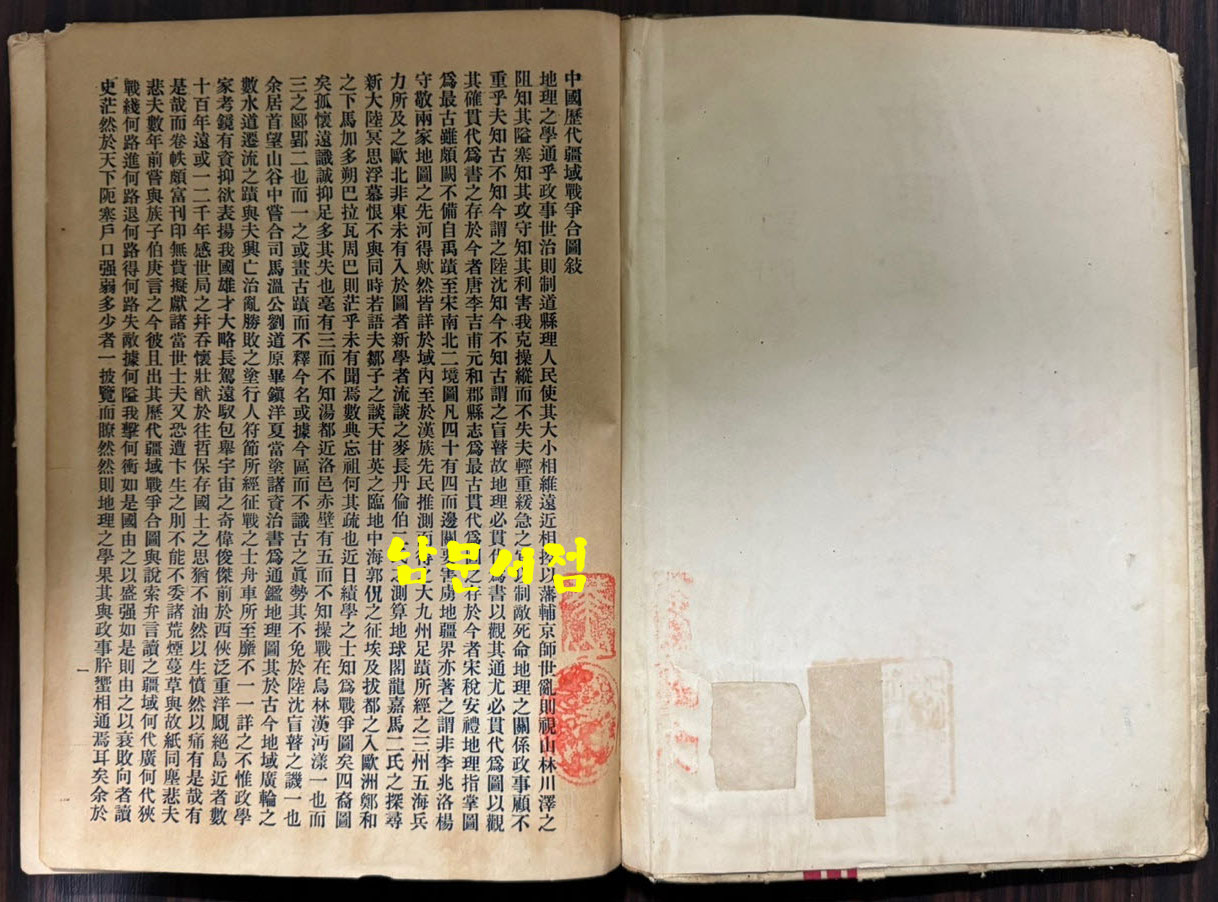 中國歷代疆域戰爭合圖敍
地理之學通乎政事世治則制道縣理人民使其大小相維遠近相 以藩輔京師世亂則視山林川澤之
阻知其隘塞知其攻守知其利害我克操縱而不失夫輕重緩急之 制敵死命地理之關係政事顧不
重乎夫知古不知今謂之陸沈知今不知古謂之盲瞽故地理必貫代爲書以觀其通尤必貫代爲圖以觀
其確貫代爲書之存於今者唐李吉甫元和郡縣志爲最古貫代爲圖之存於今者宋稅安禮地理指掌圖
爲最古雖頗闕不備自禹蹟至宋南北二境圖凡四十有四而邊關 害虜地疆界亦著之謂非李兆洛楊
守敬兩家地圖之先河得歟然皆詳於域內至於漢族先民推測 大九州足蹟所經之三州五海兵
力所及之歐北非東未有入於圖者新學者流談之麥長丹倫伯 之測算地球閣龍嘉馬二氏之探尋
新大陸冥思浮慕恨不與同時若語夫鄒子之談天甘英之臨地中海郭侃之征埃及拔都之入歐洲鄭和
之下馬加多朔巴拉瓦周巴則茫乎未有聞焉數典忘祖何其疏也近日績學之士知爲戰爭圖矣四裔圖
矣孤懷遠識誠抑足多其失也毫有三而不知湯都近洛邑赤壁有五而不知操戰在烏林漢沔漾一也而
三之郾郢二也而一之或畫古蹟而不釋今名或據今區而不識古之眞勢其不免於陸沈盲瞽之譏一也
余居首望山谷中嘗合司馬溫公劉道原畢鎭洋夏當塗諸資治書爲通鑑地理圖其於古今地域廣輪之
數水道遷流之蹟與夫興亡治亂勝敗之塗行人符節所經征戰之士舟車所至靡不一一詳之不惟政學
家考鏡有資抑欲表揚我國雄才大略長駕遠馭包舉宇宙之奇偉俊傑前於西俠泛重洋覛絕島近者數
十百年遠或一二千年感世局之幷呑懷壯猷於往哲保存國土之思猶不油然以生憤然以痛有是哉有
是哉而卷帙頗富刊印無貲擬獻諸當世士夫又恐遭卞生之刖不能不委諸荒煙蔓草與故紙同塵悲夫
悲夫數年前嘗與族子伯庚言之今彼且出其歷代疆域戰爭合圖與說索弁言讀之疆域何代廣何代狹
戰綫何路進何路退何路得何路失敵據何隘我擊何衝如是國由之以盛强如是則由之以衰敗向者讀
史茫然於天下阨塞戶口强弱多少者一披覽而瞭然然則地理之學果其與政事肸蠁相通焉耳矣余於
一
남문서점